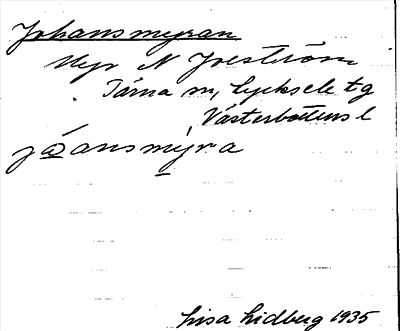 Johansmyran
Myr N Joeström
Tärna sn, Lycksele tg
Västerbottens l
jåansmýra
Lisa Lidberg 1935